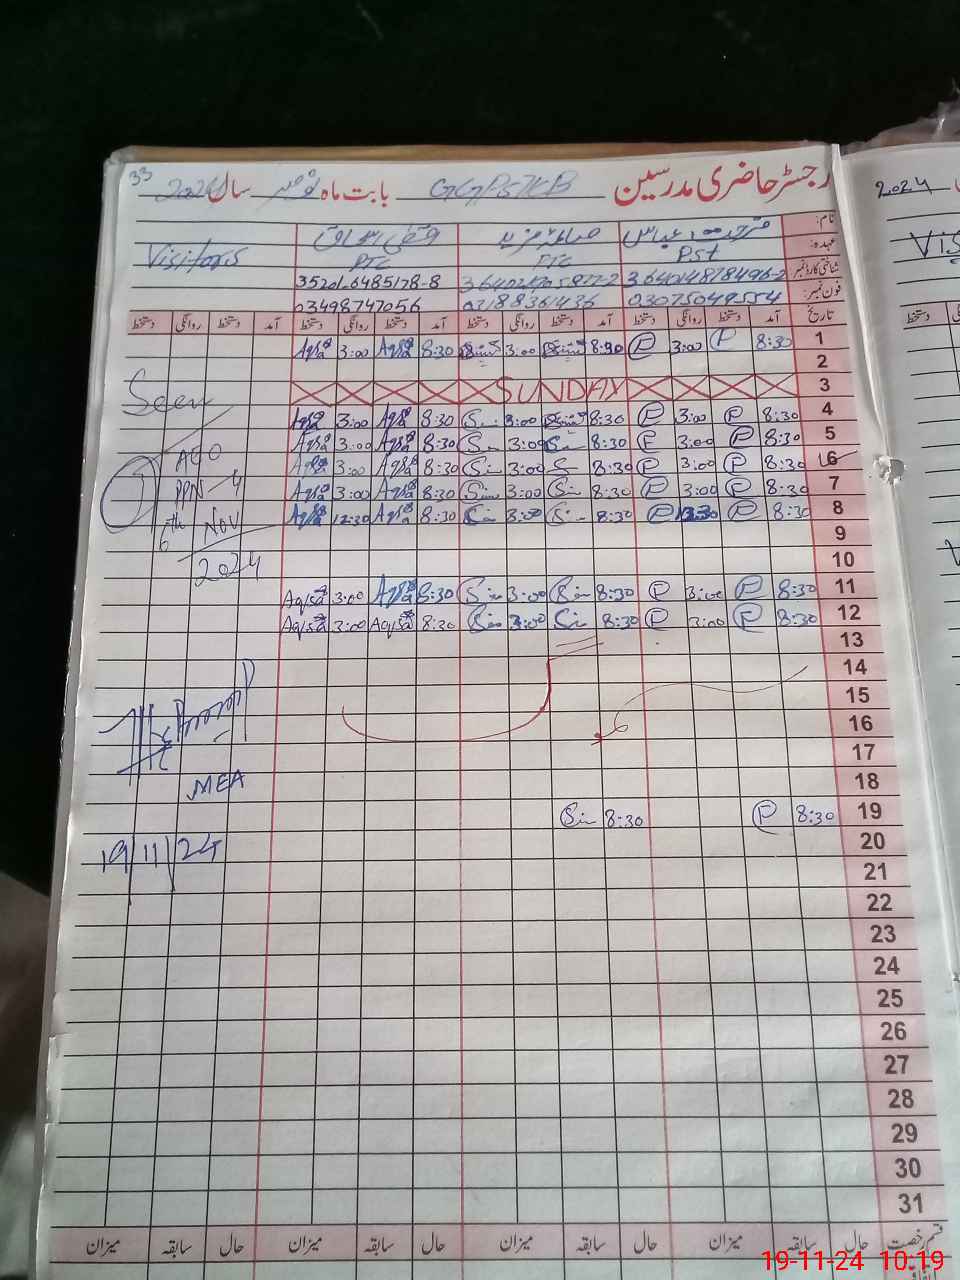 33
رجسٹر حاضری مدرسین GGPS 7KB بابت ماہ نومبر سال 2024
نام:
عہدہ: Pst PTC PTC Visitors
شناختی کارڈ نمبر 35201-6485178-8
فون نمبر: 03075049554 03188361436 03498747056
تاریخ آمد دستخط روانگی دستخط آمد دستخط روانگی دستخط آمد دستخط روانگی دستخط آمد دستخط روانگی دستخط
1 8:30 P 3:00 P 8:30 3:00 8:30 Aqsa 3:00 Aqsa
2
3 SUNDAY
4 8:30 P 3:00 P 8:30 3:00 Sin 8:30 Aqsa 3:00 Aqsa
5 8:30 P 3:00 P 8:30 Sin 3:00 Sin 8:30 Aqsa 3:00 Aqsa
6 8:30 P 3:00 P 8:30 S 3:00 Sin 8:30 Aqsa 3:00 Aqsa
7 8:30 P 3:00 P 8:30 Sin 3:00 Sin 8:30 Aqsa 3:00 Aqsa
8 8:30 P 12:30 P 8:30 Sin 3:00 Sin 8:30 Aqsa 12:30 Aqsa
9
10
11 8:30 P 3:00 P 8:30 Sin 3:00 Sin 8:30 Aqsa 3:00 Aqsa
12 8:30 P 3:00 P 8:30 Sin 3:00 Sin 8:30 Aqsa 3:00 Aqsa
13
14
15
16
17
18
19 8:30 P 8:30 Sin
20
21
22
23
24
25
26
27
28
29
30
31
Seen
AEO
PPN-4
6th Nov
2024
MEA
19/11/24
قسم رخصت حال سابقہ میزان حال سابقہ میزان حال سابقہ میزان حال سابقہ میزان
2024
Vis
دستخط
19-11-24 10:19